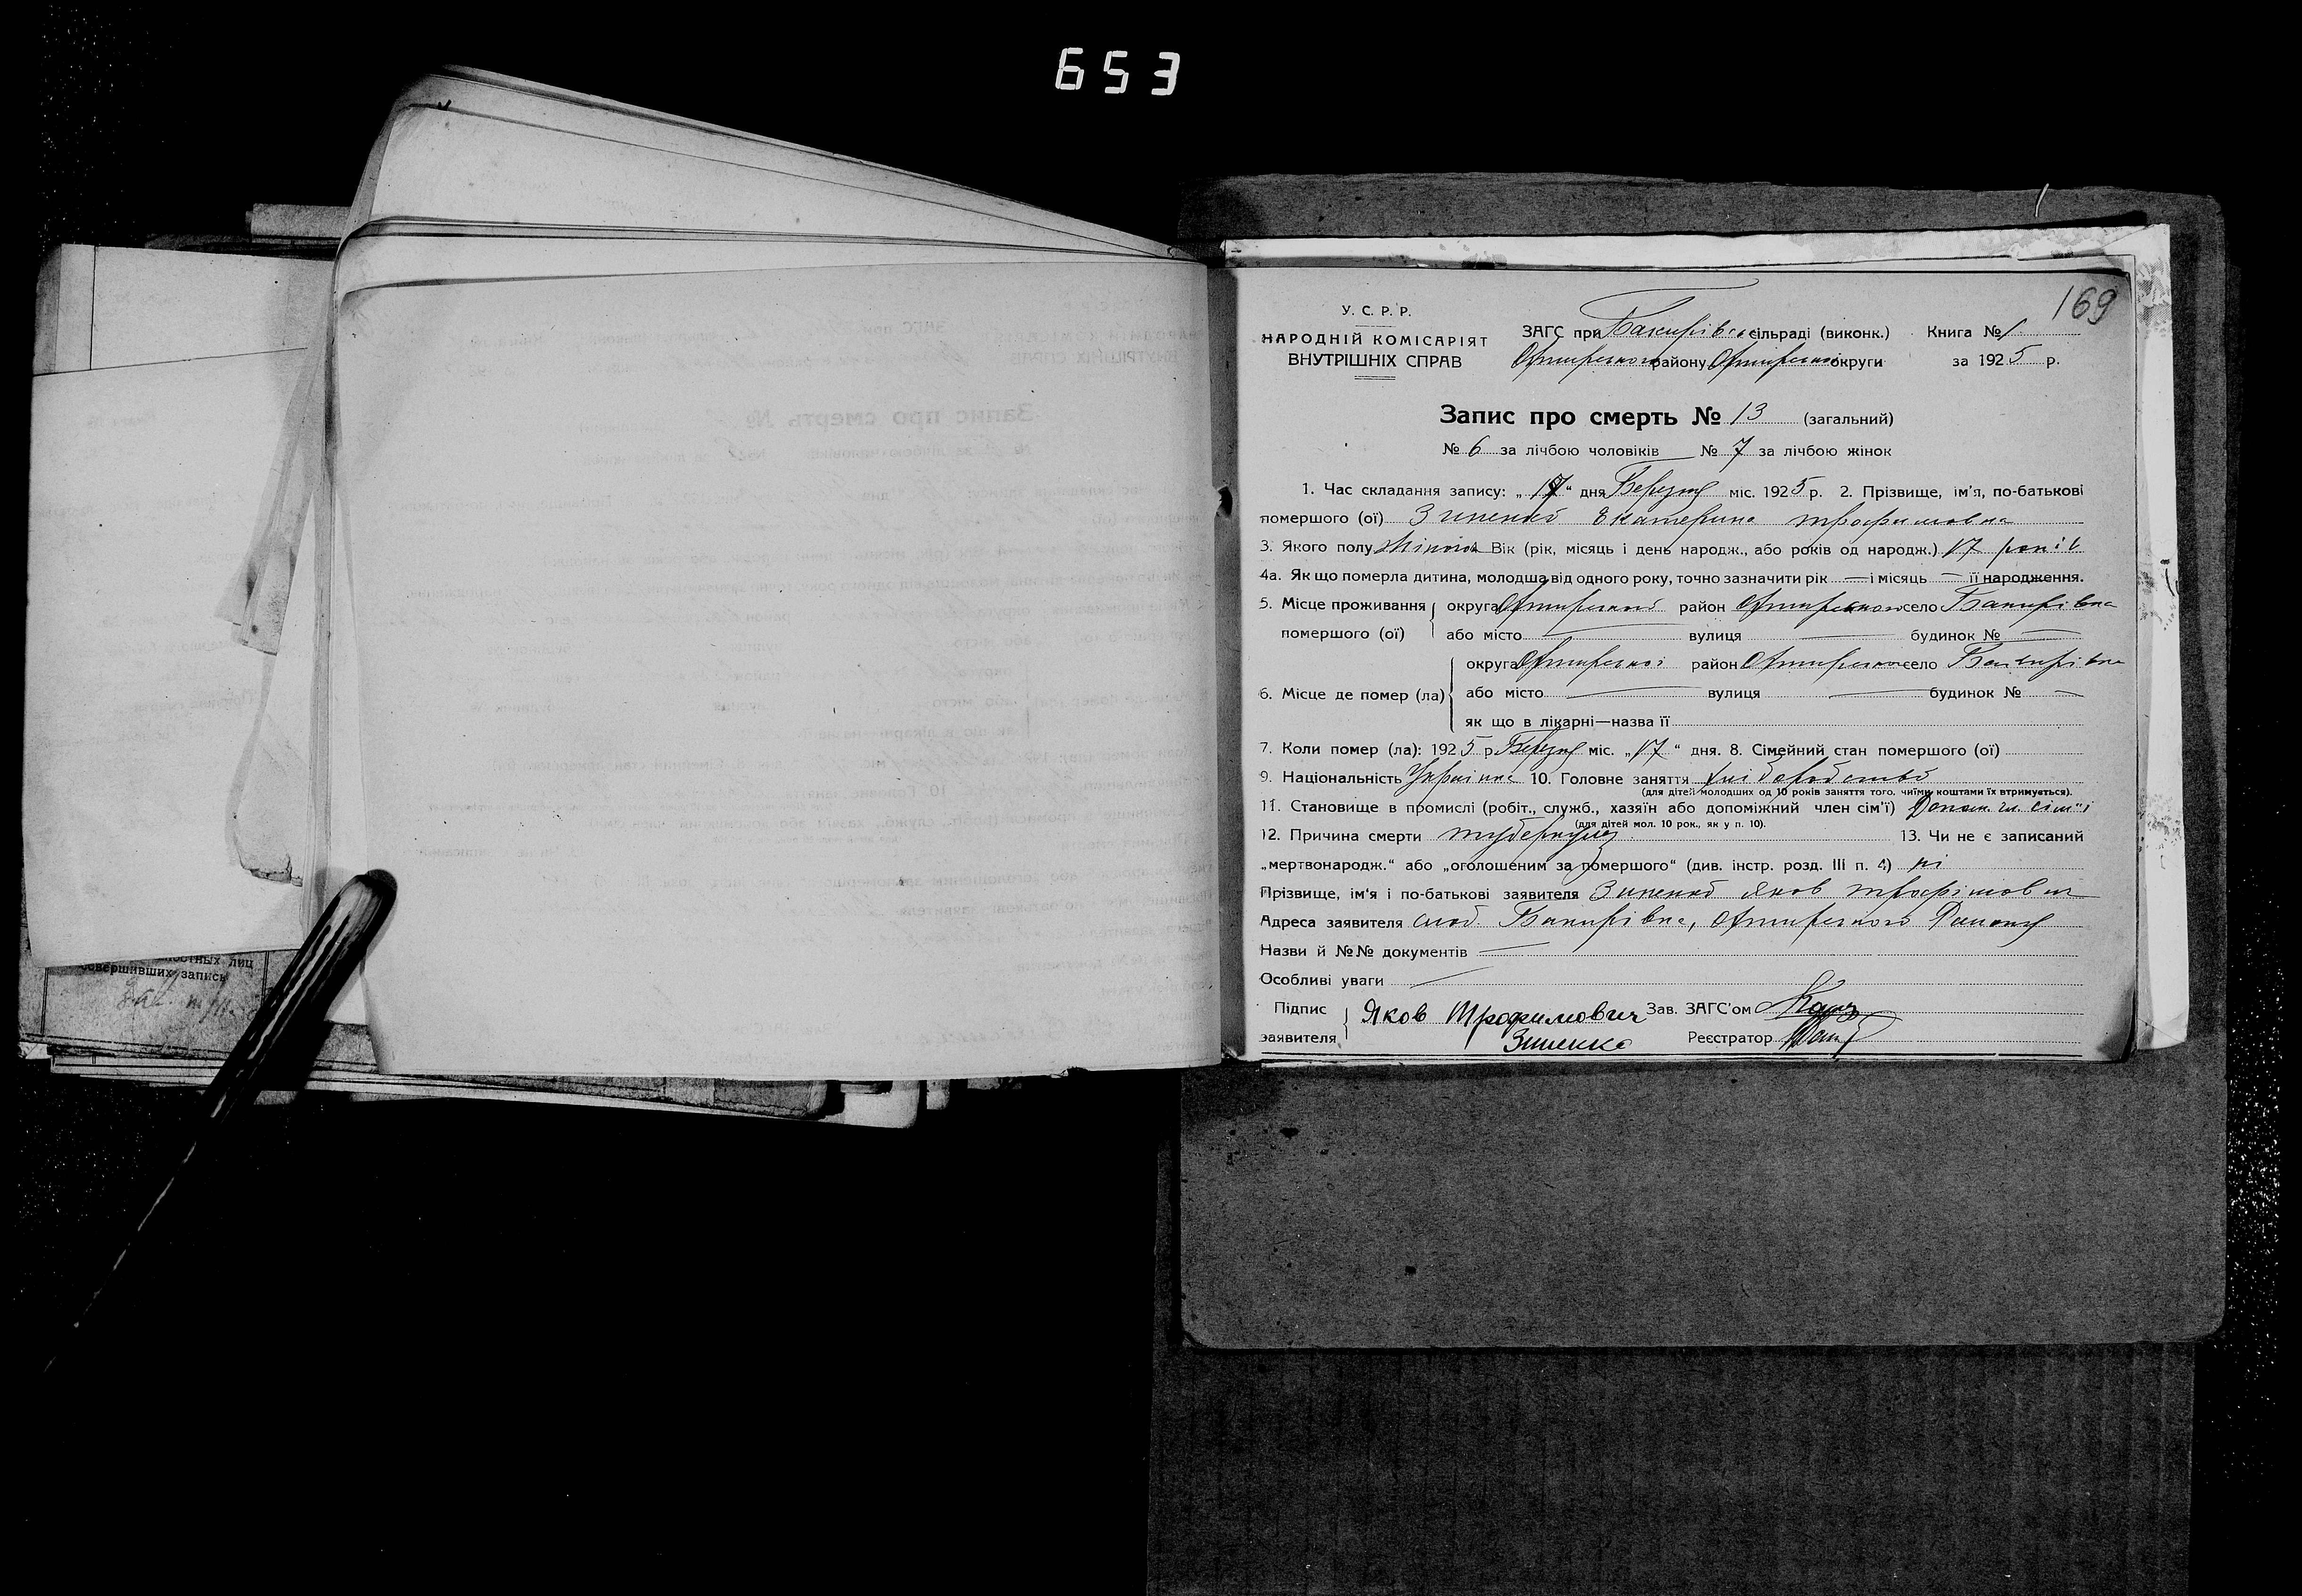 653
169
У. С. Р. Р.
НАРОДНІЙ КОМІСАРІЯТ
ВНУТРІШНІХ СПРАВ
ЗАГС при Бакирівськ. сільраді (виконк.) Книга № 1
Охтирського району Охтирської округи за 1925 р.
Запис про смерть № 13 (загальний)
№ 6 за лічбою чоловіків № 7 за лічбою жінок
1. Час складання запису: „ 17 “ дня Березня міс. 1925 р. 2. Прізвище, ім'я, по-батькові
помершого (ої) Зиненко Екатерина Трофимовна
3. Якого полу Жіночого Вік (рік, місяць і день народж., або років од народж.) 17 років
4а. Як що померла дитина, молодша від одного року, точно зазначити рік — і місяць — її народження.
5. Місце проживання помершого (ої) округа Охтирської район Охтирського село Бакирівка
або місто — вулиця — будинок № —
6. Місце де помер (ла) округа Охтирської район Охтирського село Бакирівка
або місто — вулиця — будинок № —
як що в лікарні—назва її
7. Коли помер (ла): 1925 р. Березня міс. „ 17 “ дня. 8. Сімейний стан помершого (ої)
9. Національність Українка 10. Головне заняття хліборобство
(для дітей молодших од 10 років заняття того, чиїми коштами їх втримується).
11. Становище в промислі (робіт., служб., хазяїн або допоміжний член сім'ї) Допом. чл. сім"ї
(для дітей мол. 10 рок., як у п. 10).
12. Причина смерти туберкульоз 13. Чи не є записаний
„мертвонародж.“ або „оголошеним за помершого“ (див. інстр. розд. III п. 4) ні
Прізвище, ім'я і по-батькові заявителя Зиненко Яков Трофімович
Адреса заявителя слоб. Бакирівка, Охтирського Району
Назви й №№ документів —
Особливі уваги —
Підпис заявителя Яков Трофимович Зиненко
Зав. ЗАГС'ом
Реєстратор
совершивших запись